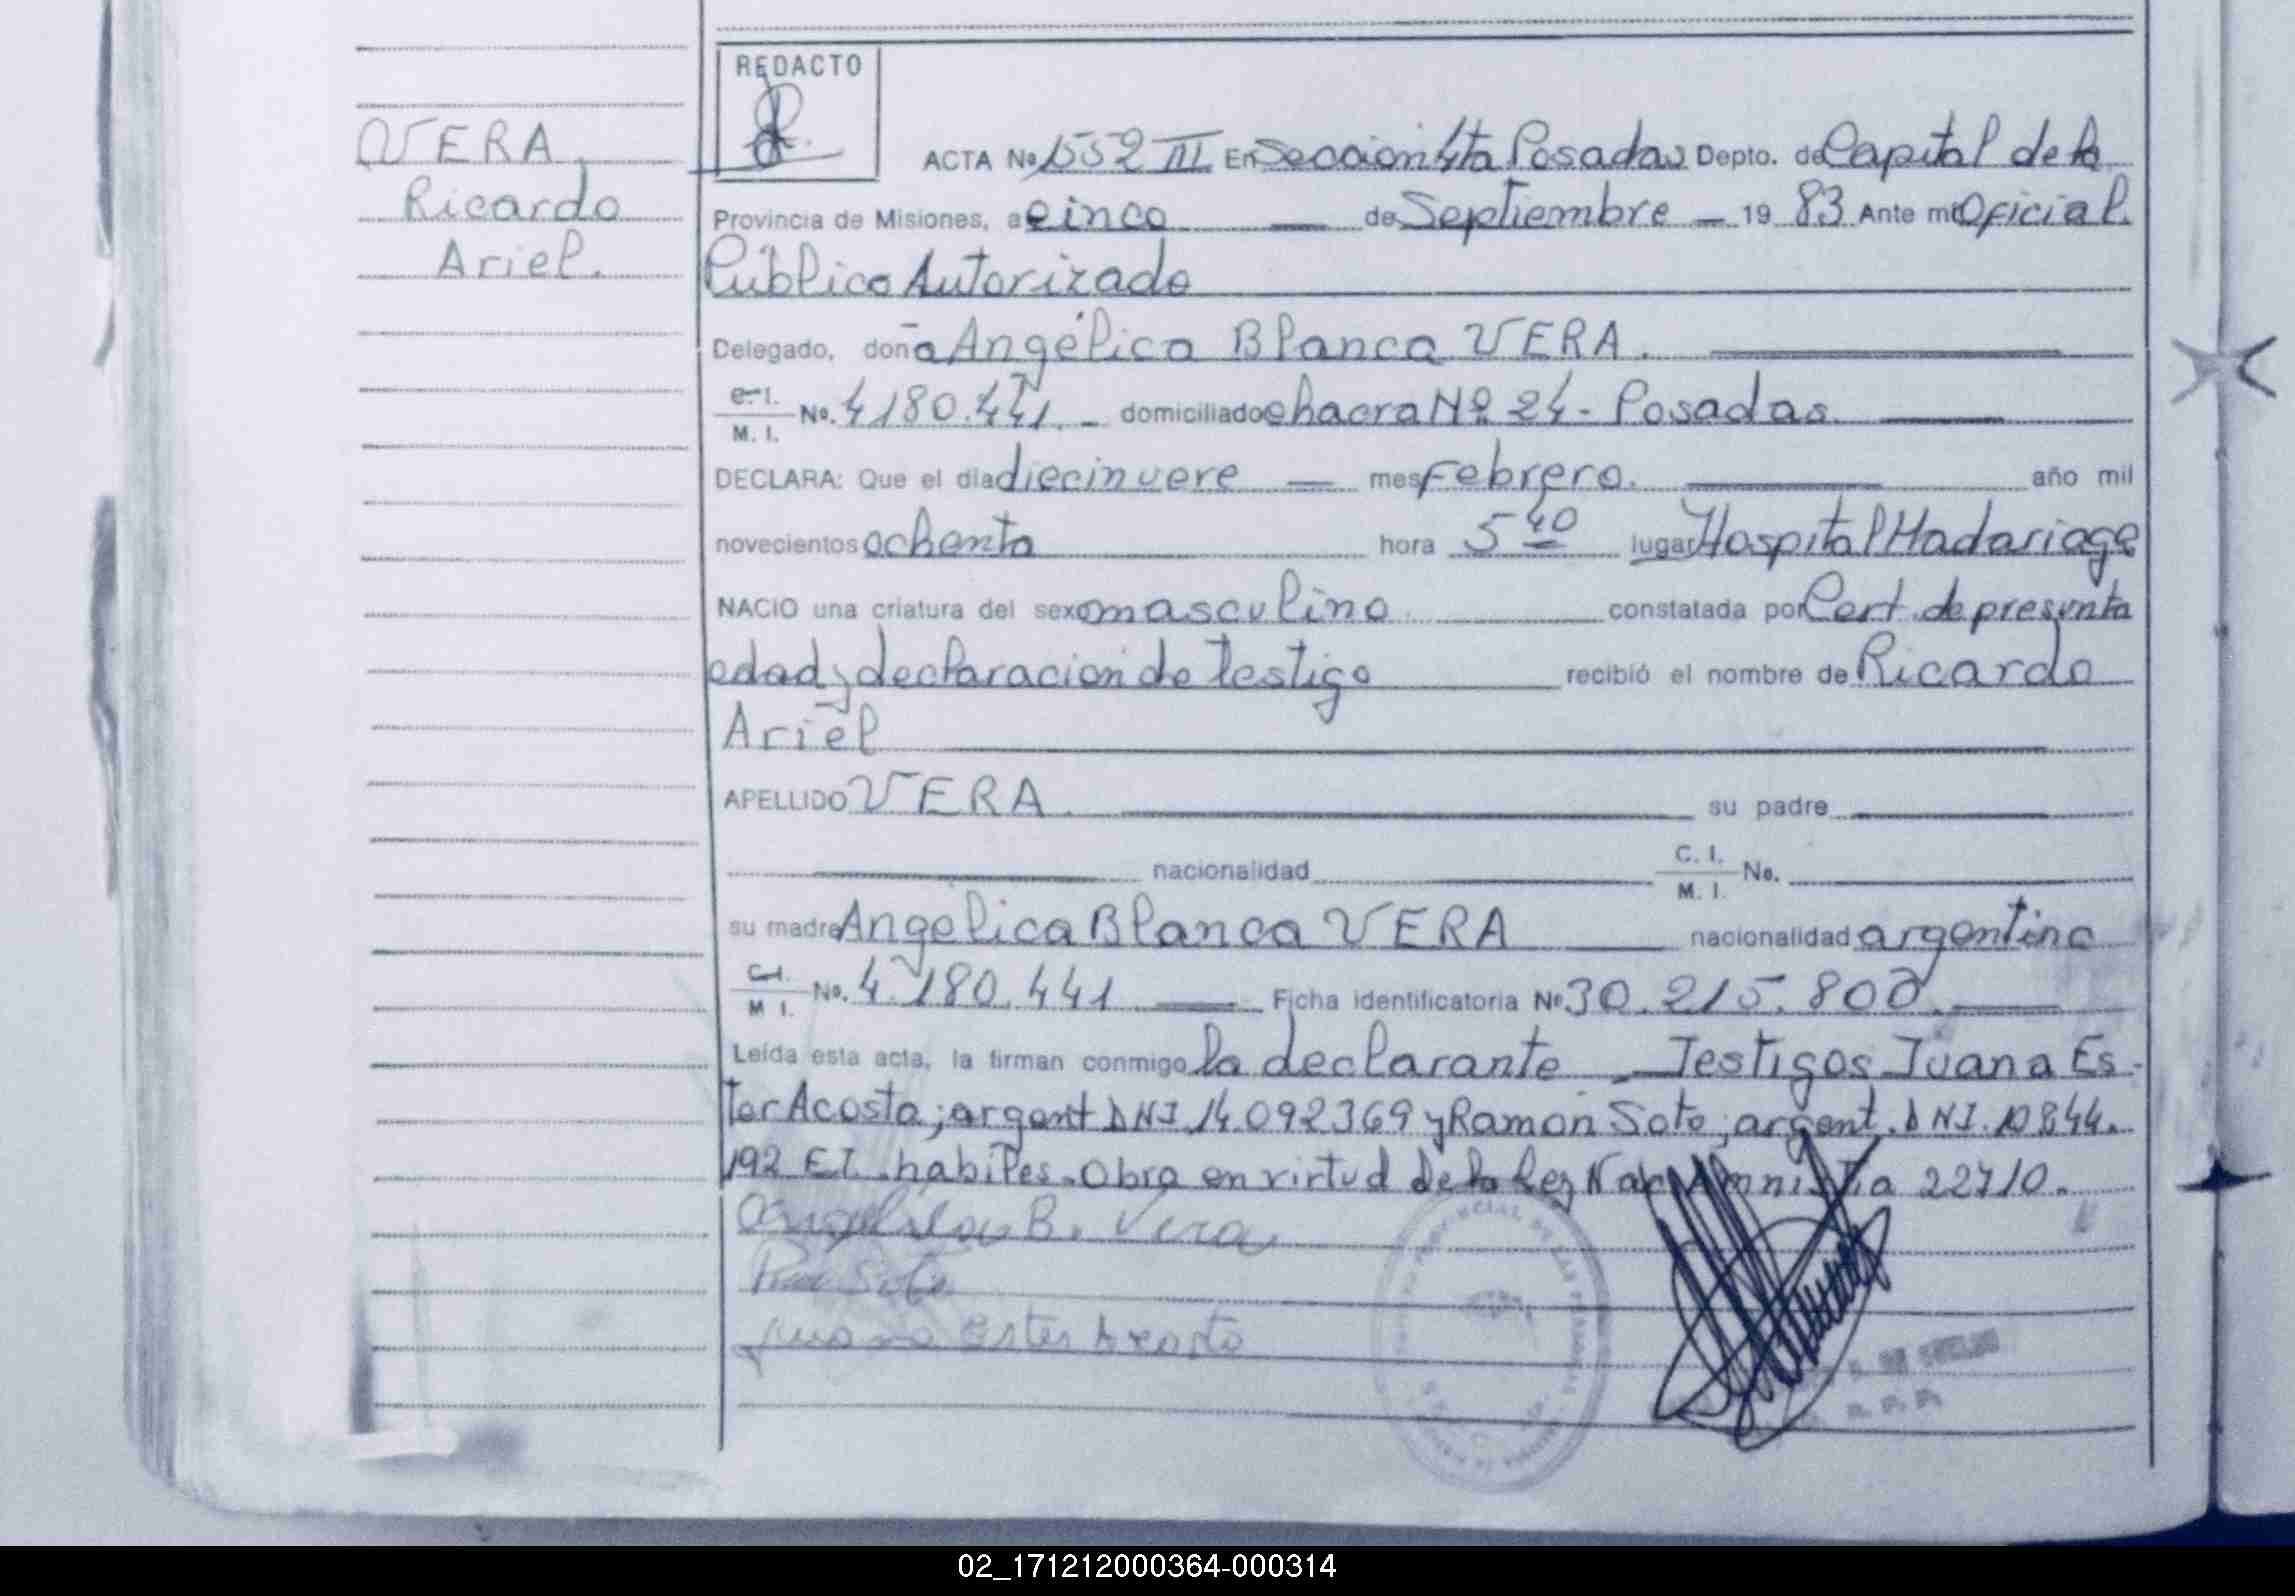 REDACTO
VERA,
Ricardo
Ariel.
ACTA No 1552 III En Seccion 4ta Posadas Depto. de Capital de la
Provincia de Misiones, a cinco — de Septiembre — 19 83 Ante mi Oficial
Público Autorizado
Delegado, doña Angélica Blanca VERA.
C. I. M. I. No. 4180.441. - domiciliado chacra Nº 24 - Posadas.
DECLARA: Que el dia diecinueve — mes Febrero. año mil
novecientos ochenta hora 5 40 lugar Hospital Madariaga
NACIO una criatura del sexo masculino constatada por Cert. de presunta
edad y declaracion de testigo recibió el nombre de Ricardo
Ariel
APELLIDO VERA. su padre
nacionalidad C. I. M. I. No.
su madre Angelica Blanca VERA nacionalidad argentina
C. I. M. I. No. 4.180.441 Ficha identificatoria No 30.215.800.
Leída esta acta, la firman conmigo la declarante - Testigos Juana Es-
ter Acosta; argent DNI 14.092369 y Ramon Soto; argent. DNI. 10844.
192 ET. habiles. Obra en virtud de la Ley Nac Amnistia 22710.
Angelica B. Vera
Soto
Juana Ester Acosta
02_171212000364-000314